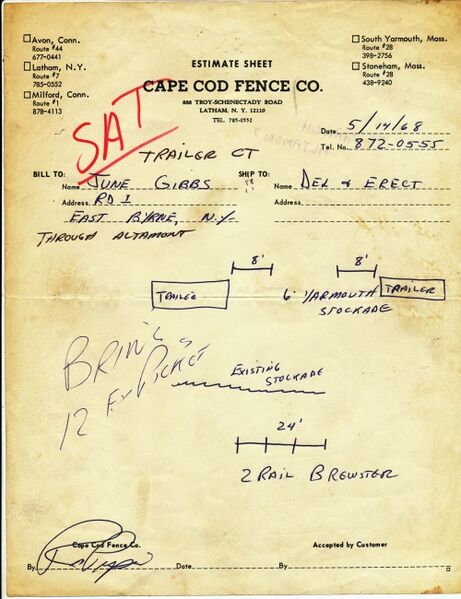 Avon, Conn.
Route #44
677-0441
Latham, N.Y.
Route #7
785-0552
Milford, Conn.
Route #1
878-4113
South Yarmouth, Mass.
Route #28
398-2756
Stoneham, Mass.
Route #28
438-9240
ESTIMATE SHEET
CAPE COD FENCE CO.
888 TROY-SCHENECTADY ROAD
LATHAM, N. Y. 12110
TEL. 785-0552
SAT
Date 5/14/68
Tel. No. 872-0555
TRAILER CT
BILL TO: SHIP TO:
Name JUNE GIBBS Name DEL & ERECT
Address RD 1 Address
EAST BYRNE, N.Y.
THROUGH ALTAMONT
8' 8'
TRAILER 6' YARMOUTH STOCKADE TRAILER
BRING
12 EX PICKET
EXISTING STOCKADE
24'
2 RAIL BREWSTER
Cape Cod Fence Co. Accepted by Customer
By Date By